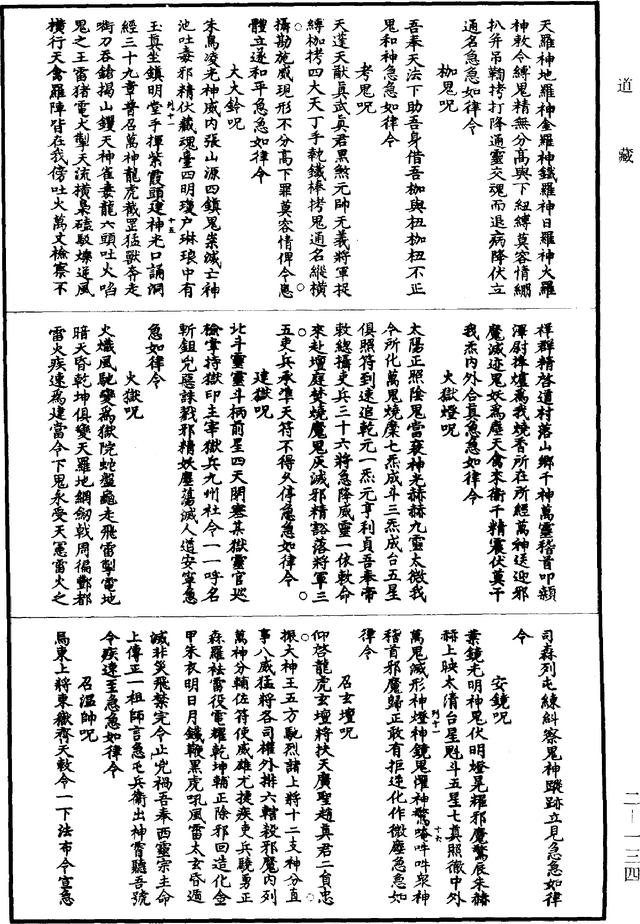 道藏
天羅神地羅神金羅神鐵羅神日羅神火羅
神敕令縛鬼精無分高與下紐縛莫容情綳
扒斧吊鞫拷打降通靈交魂而退病降伏立
通名急急如律令
枷鬼呪
吾奉天法下助吾身借吾枷與杻枷杻不正
鬼和神急急如律令
考鬼呪
天蓬天猷真武真君黑煞元帥無義將軍捉
縛枷拷四大天丁手執鐵棒拷鬼通名縱橫
攝勘施威現形不分高下罪莫容情俾令患
體立遂和平急急如律令
大火鈴呪
朱鳥凌光神威內張山源四鎮鬼祟滅亡神
池吐毒邪精伏藏魂臺四明瓊戶琳琅中有
玉真坐鎮明堂手揮紫霞頭建神光口誦洞
經三十九章普召萬神龍虎截罡猛獸奔走
啣刀吞鎗揭山鑽天神雀毒龍六頭吐火啗
鬼之王雷猪電火掣天流橫梟磕駁爍逆風
橫行天禽羅陣皆在我傍吐火萬丈檢察不
祥群精啓道村落山鄉千神萬靈稽首叩顙
澤尉捧爐爲我燒香所在所經萬神送迎邪
魔滅迹鬼妖爲塵天禽來衛千精震伏莫干
我炁內外合真急急如律令
火獄燈呪
太陽正照陰鬼當衰神光赫赫九靈太微我
今所化萬鬼燒糜七炁成斗三炁成台五星
俱照符到速追乾元一炁元亨利貞吾奉帝
敕總攝吏兵三十六將急降威靈一依敕命
來赴壇庭焚燒魔鬼灰滅邪精豁落將軍三
五吏兵承準天符不得久停急急如律令
建獄呪
北斗靈靈斗柄前星四天閉塞其獄靈官巡
檢掌持獄印主宰獄兵九州社令一一呼名
斬鉏兇惡誅戮邪精妖塵蕩滅人道安寧急
急如律令
火獄呪
火熾風馳變爲獄院蛇盤龜走飛雷掣電地
暗天昏乾坤俱變天羅地網劒戟周徧酆都
雷火疾速爲建當今下鬼永受天冤雷火之
司森列屯練糾察鬼神蹤跡立見急急如律
令
安鏡呪
業鏡光明神鬼伏明燈晃耀邪魔驚辰朱赫
赫上映太清台星魁斗五星七真照徹中外
萬鬼滅形神燈神鏡鬼懼神驚唵吽吽衆神
稽首邪魔歸正敢有拒逆化作微塵急急如
律令
召玄壇呪
仰啓龍虎玄壇將扶天廣聖趙真君二員忠
振大神王五方馳烈諸上將十二支神分直
事八威猛將各司權外排六轄殺邪魔內列
萬神分輔佐符使威雄尤捷疾吏兵驍勇正
森羅袪雷役電耀乾坤輔正除邪回造化金
甲朱衣明日月鐵鞭黑虎吼風雷太玄昏遁
滅非災飛禁完令止兇禍吾奉西靈宗主命
上傳正一祖師言急屯兵衛出神霄聽吾號
令疾速至急急如律令
召溫帥呪
馬東上將東嶽齊天敕令一下法布令宣急
二—一三四